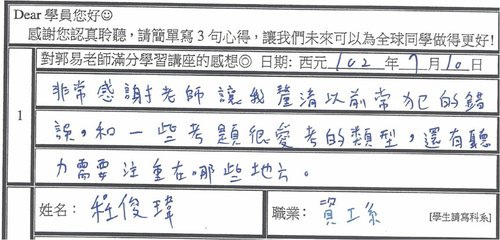 Dear 學員您好☺
感謝您認真聆聽，請簡單寫3句心得，讓我們未來可以為全球同學做得更好!
對郭易老師滿分學習講座的感想◎ 日期: 西元 102 年 7 月 10 日
1
非常感謝老師讓我釐清以前常犯的錯
誤，和一些考題很愛考的類型，還有聽
力需要注重在哪些地方。
姓名: 程俊瑋 職業: 資工系 [學生請寫科系]